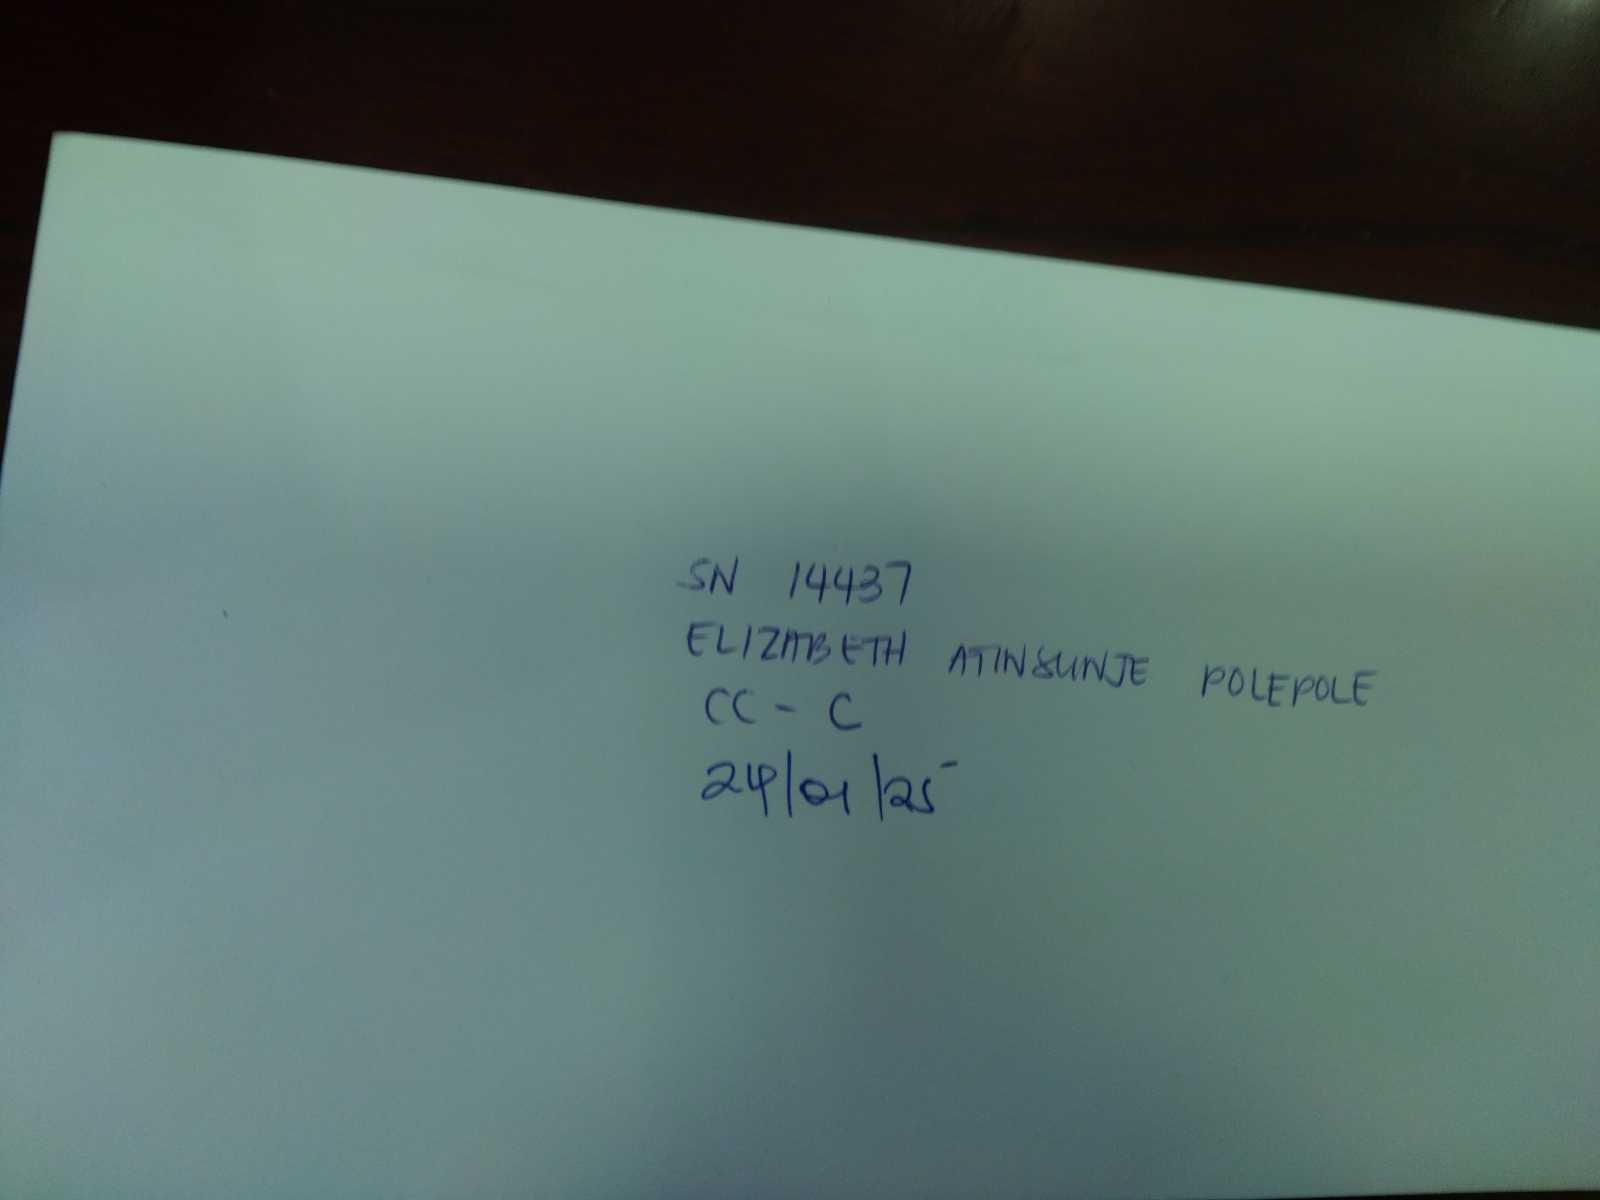 SN 14437
ELIZABETH ATINSUNJE POLEPOLE
CC - C
24/01/25